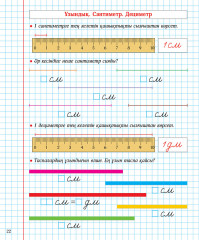 Ұзындық. Сантиметр. Дециметр
• 1 сантиметрге тең кесінді қашықтықты сызғыштан көрсет.
0 1 2 3 4 5 6 7 8 9 10
1 см
• Әр кесіндіге неше сантиметр сияды?
см см
см
см см
• 1 дециметрге тең кесінді қашықтықты сызғыштан көрсет.
0 1 2 3 4 5 6 7 8 9 10
1 дм
• Таспалардың ұзындығын өлше. Ең ұзын таспа қайсы?
см
см
см = дм
см
см
22